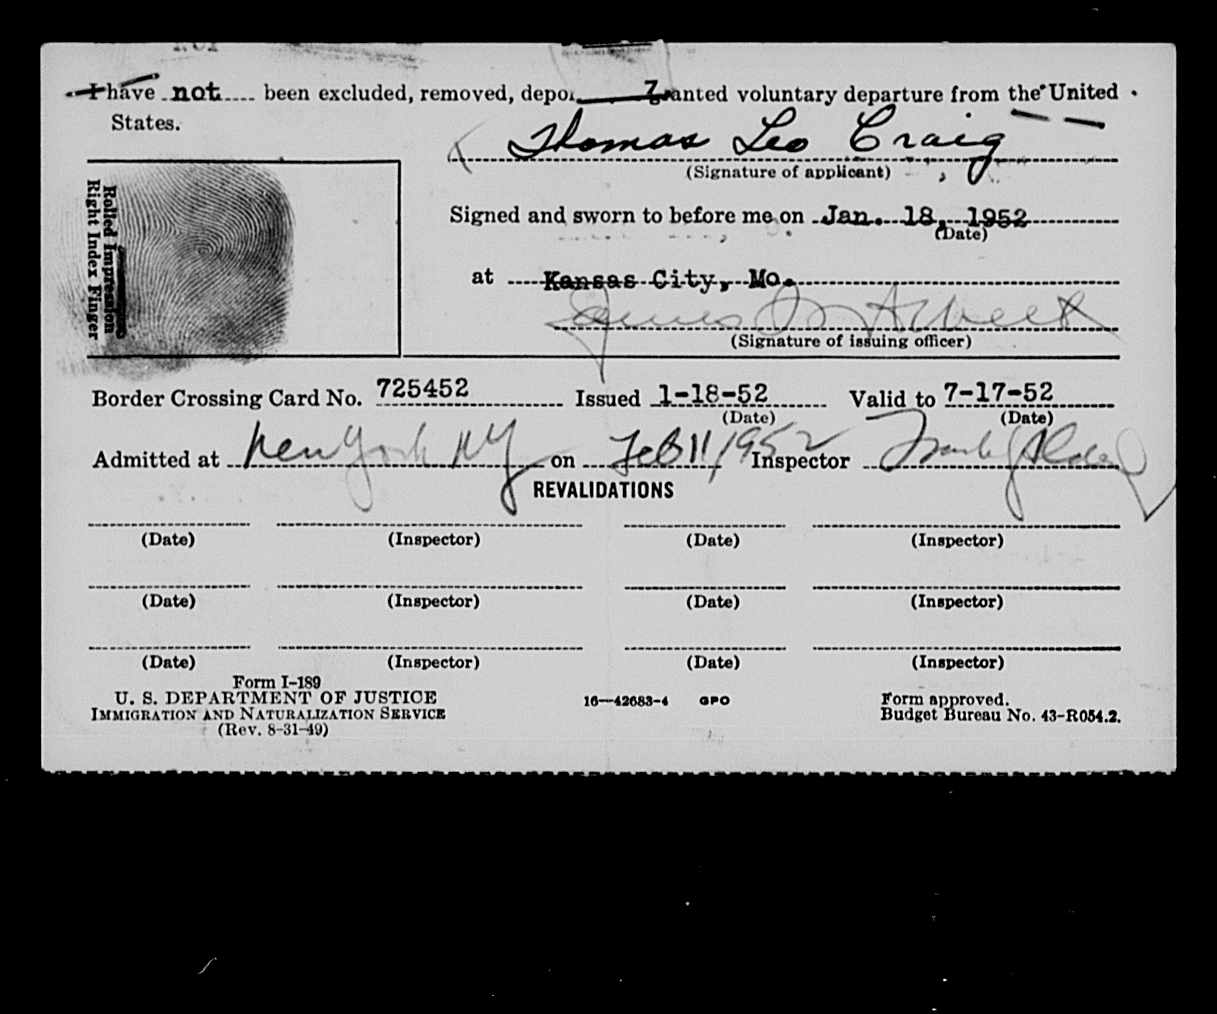 I have not been excluded, removed, depor granted voluntary departure from the United
States.
Thomas Leo Craig
(Signature of applicant)
Rolled Impression
Right Index Finger
Signed and sworn to before me on Jan. 18, 1952
(Date)
at Kansas City, Mo.
James
(Signature of issuing officer)
Border Crossing Card No. 725452 Issued 1-18-52 Valid to 7-17-52
(Date) (Date)
Admitted at New York NY on Feb 11, 1952 Inspector Frank J
REVALIDATIONS
(Date) (Inspector) (Date) (Inspector)
(Date) (Inspector) (Date) (Inspector)
(Date) (Inspector) (Date) (Inspector)
Form I-189
U. S. DEPARTMENT OF JUSTICE 16—42683-4 GPO Form approved.
IMMIGRATION AND NATURALIZATION SERVICE Budget Bureau No. 43-R054.2.
(Rev. 8-31-49)